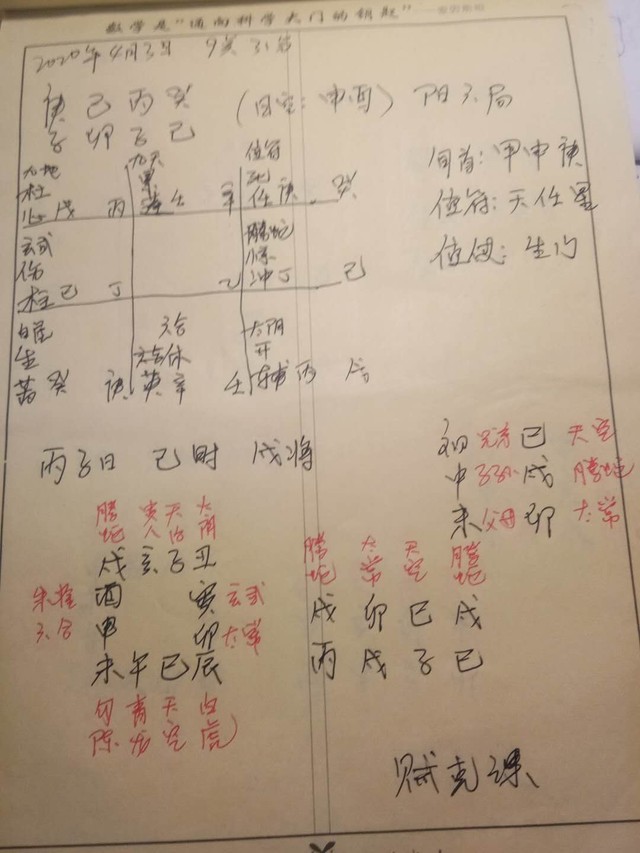 数学是"通向科学大门的钥匙"
2020年4月3日 9点31分
庚己丙癸 (日空:申酉) 阳六局
子卯子巳
旬首:甲申庚
值符:天任星
值使:生门
九地
柱
戊 丙
九天
壬 辛
值符
任庚 癸
玄武
伤
己 丁
乙
腾蛇
冲丁 己
白虎
生
癸 庚
六合
休
英辛 壬
太阴
开
辅丙 戊
丙子日 巳时 戌将
初 兄弟 巳 天空
中 子孙 戌 腾蛇
末 父母 卯 太常
腾蛇 贵人 天后 太阴
戌亥子丑
朱雀 酉 寅 玄武
六合 申 卯 太常
未午巳辰
勾陈 青龙 天空 白虎
腾蛇 太常 天空 腾蛇
戌 卯 巳 戌
丙 戌 子 巳
贼克课